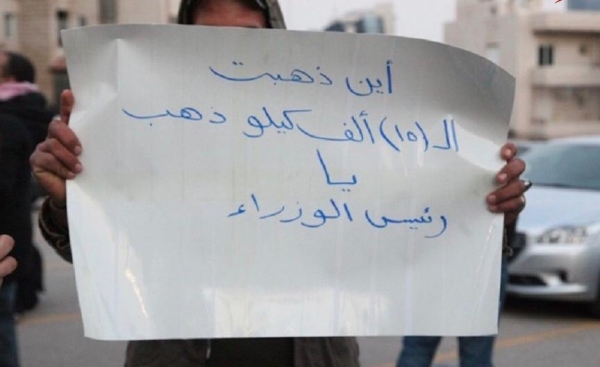 أين ذهبت
الـ (١٥) ألف كيلو ذهب
يا
رئيس الوزراء